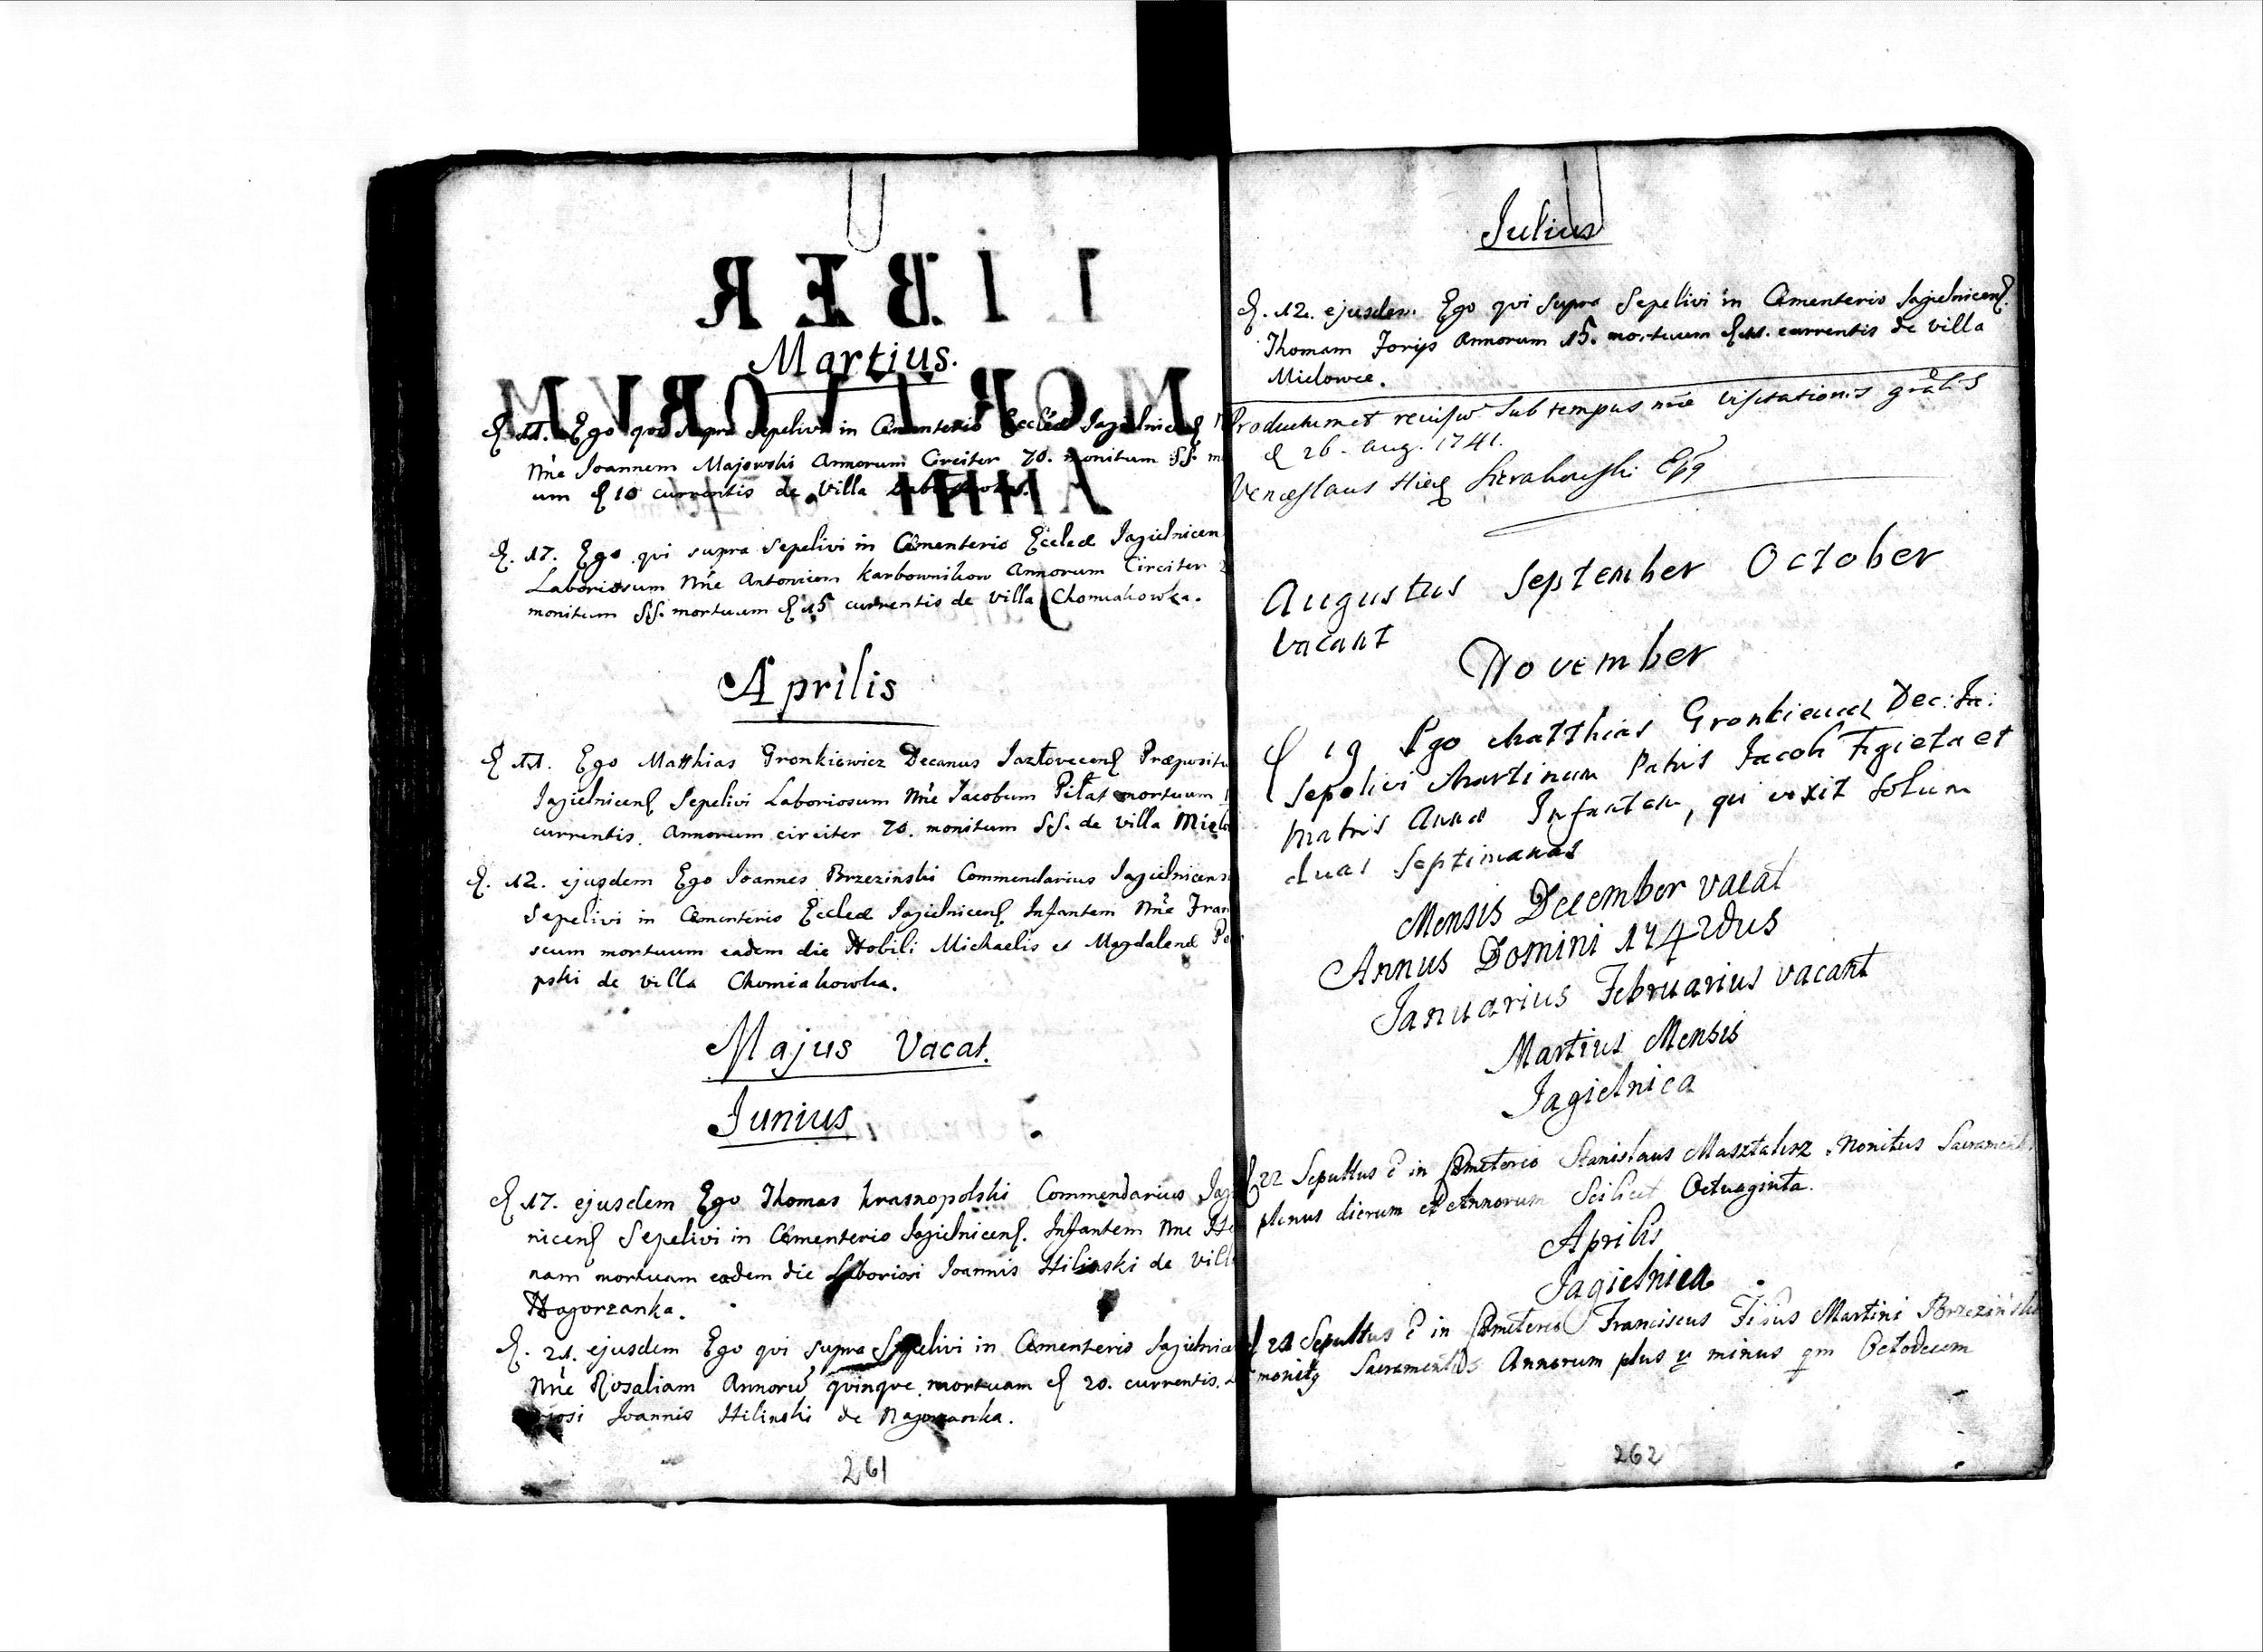 Martius.
11. Ego qui supra Sepelivi in Cæmenterio Eccleæ Jagielnicen
Nn̄e Joannem Majewski Annorum Circiter 70. monitum SS. m
um 10 currentis de Villa
17. Ego qui supra Sepelivi in Cæmenterio Eccleæ Jagielnicen
Laboriosum Nn̄e Antonium Karbownikow Annorum Circiter
monitum SS. mortuum 15 currentis de Villa Chomiakowka.
Aprilis
11. Ego Matthias Gronkiewicz Decanus Jazłovecens Præposit
Jagielnicens Sepelivi Laboriosum Nn̄e Jacobum Piłat mortuum
currentis. Annorum circiter 70. monitum SS. de Villa Miel
12. ejusdem Ego Joannes Brzezinski Commendarius Jagielnicens
Sepelivi in Cæmenterio Eccleæ Jagielnicens Infantem Nn̄e Fran
scum mortuum eadem die Nobili Michaelis et Magdalenæ Po
pski de villa Chomiakowka.
Majus Vacat.
Junius
17. ejusdem Ego Thomas Krasnopolski Commendarius Jagi
nicens Sepelivi in Cæmenterio Jagielnicens. Infantem Nn̄e He
nam mortuam eadem die Laboriosi Joannis Hilinski de Vill
Nagorzanka.
21. ejusdem Ego qui supra Sepelivi in Cæmenterio Jagielnice
Nn̄e Rosaliam Annorū quinqve mortuam 20. currentis.
iosi Joannis Hilinski de Nagorzanka.
261
Julius
12. ejusdem Ego qui supra Sepelivi in Cæmenterio Jagielnicens.
Thomam Annorum 15. mortuum 11. currentis de villa
Mielowce.
Productum et revisum sub tempus visitationis
26. Aug. 1741.
Venceslaus Hier Sierakowski Epp
Augustus September October
vacant
November
19 Ego Matthias Gronkiewicz Dec: Ja:
Sepelivi Martinum Patris Jacobi Figiela et
Matris Annæ Infantem, qui vixit solum
duas septimanas
Mensis December vacat
Annus Domini 1742dus
Januarius Februarius vacant
Martius Mensis
Jagielnica
22 Sepultus ē in Cæmeterio Stanislaus Masztalerz monitus Sacrament
plenus dierum et Annorum Scilicet Octuaginta.
Aprilis
Jagielnica
21 Sepultus ē in Cæmeterio Franciscus Filius Martini Brzeziński
Sacramentis Annorum plus minus Octodecem
262
LIBER
MORTUORVM
ANNI